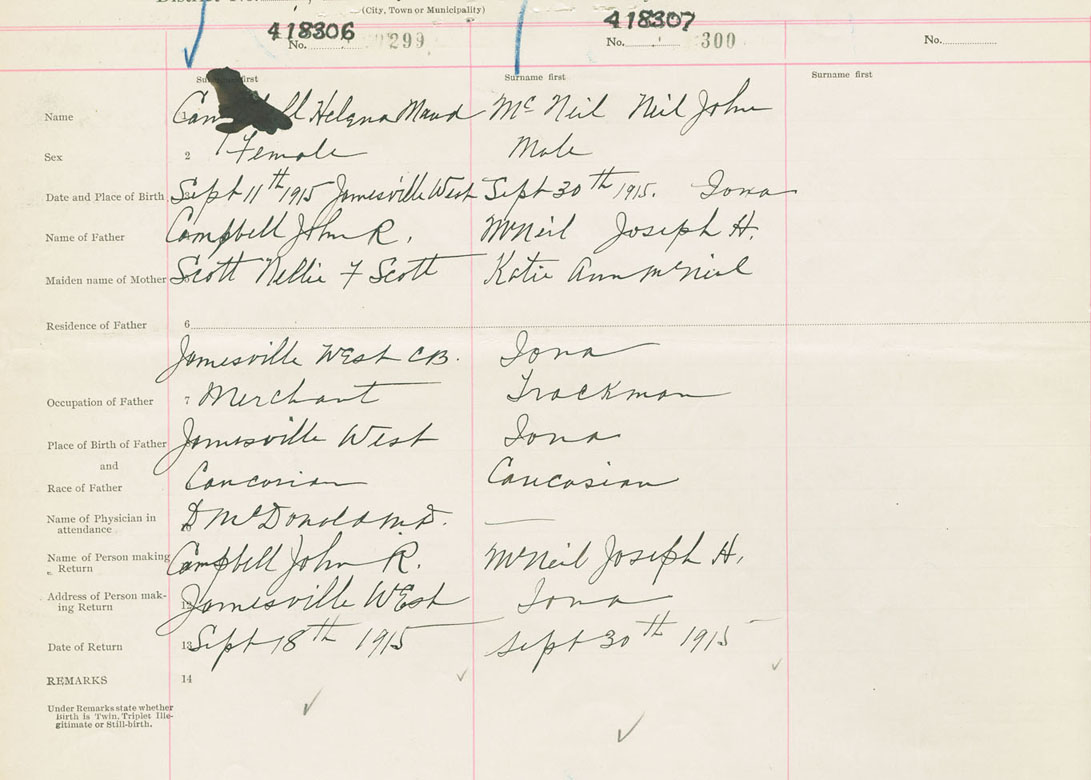 (City, Town or Municipality)
418306 418307
No. 299 No. 300 No.
first Surname first Surname first
Name Helena Maud Mc Neil Neil John
Sex 2 Female Male
Date and Place of Birth Sept 11th 1915 Jamesville West Sept 30th 1915. Iona
Name of Father Campbell John R. McNeil Joseph H.
Maiden name of Mother Scott Nellie F Scott Katie Ann McNeil
Residence of Father 6
Jamesville West CB. Iona
Occupation of Father 7 Merchant Trackman
Place of Birth of Father Jamesville West Iona
and
Race of Father Caucasian Caucasian
Name of Physician in
attendance D McDonald M.D. —
Name of Person making
Return Campbell John R. McNeil Joseph H.
Address of Person mak-
ing Return Jamesville West Iona
Date of Return 13 Sept 18th 1915 Sept 30th 1915
REMARKS 14
Under Remarks state whether
Birth is Twin, Triplet Ille-
gitimate or Still-birth.